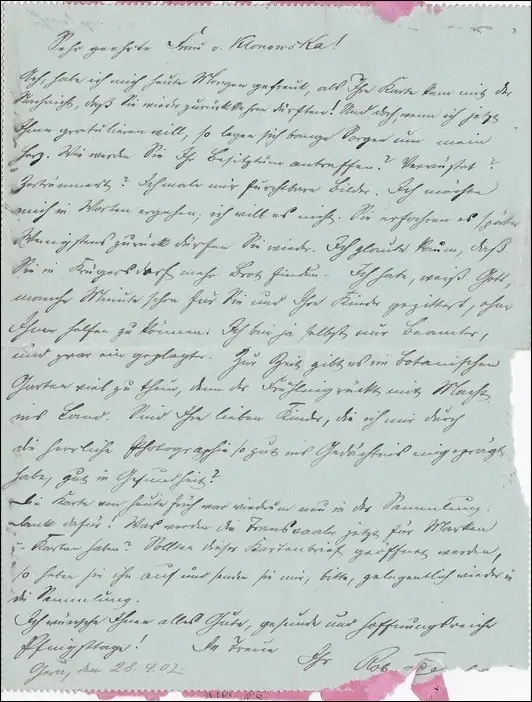 Sehr geehrte Frau v. Klonowska!
Ach, habe ich mich heute Morgen gefreut, als Ihre Karte kam mit der
Nachricht, daß Sie wieder zurückkehren dürften! Und doch, wenn ich jetzt
Ihnen gratulieren will, so legen sich bange Sorgen um mein
Herz. Wie werden Sie Ihr Besitztum antreffen? Verwüstet?
Zertrümmert? Ich male mir furchtbare Bilder. Ich möchte
mich in Worten ergehen, ich will es nicht. Sie erfahren es später
Wenigstens zurück dürfen Sie wieder. Ich glaube kaum, daß
Sie in Krügersdorf mehr Brot finden. Ich habe, weiß Gott,
manche Minute schon für Sie und Ihre Kinder gezittert, ohne
Ihnen helfen zu können. Ich bin ja selbst nur Beamter,
und zwar ein geplagter. Zur Zeit gibt es im botanischen
Garten viel zu thun, denn der Frühling rückt mit Macht
ins Land. Sind Ihre lieben Kinder, die ich mir durch
die herrliche Photographie so gut ins Gedächtnis eingeprägt
habe, gut in Gesundheit?
Die Karte von heute früh war wiederum neu in der Sammlung.
Dank dafür! Was werden die Transvaaler jetzt für Marken
- Karten haben? Sollten dieser Kartenbrief geöffnet werden,
so heben sie ihn auf und senden sie mir, bitte, gelegentlich wieder in
die Sammlung.
Ich wünsche Ihnen alles Gute, gesunde und hoffnungsreiche
Pfingsttage! In Treue
Ihr Rob.
Gera, den 28.4.02.